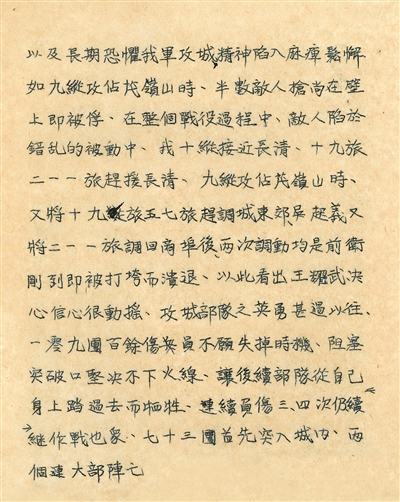 以及長期恐懼我軍攻城精神陷入麻痺鬆懈
如九縱攻佔茂嶺山時、半數敵人搶尚在壁
上即被俘、在整個戰役過程中、敵人陷於
錯乱的被動中、我十縱接近長清、十九旅
二一一旅趕援長清、九縱攻佔茂嶺山時、
又將十九旅五七旅趕調城東郊吳起義又
將二一一旅調回商埠後、兩次調動均是前衛
剛到即被打垮而潰退、以此看出王耀武決
心信心很動搖、攻城部隊之英勇甚過以往、
一零九團百餘傷員不願失掉時機、阻塞
突破口坚决不下火線、讓後續部隊從自己
身上踏過去而牺牲、連續負傷三、四次仍續
継作戰也象、七十三團首先突入城内、兩
個連大部陣亡